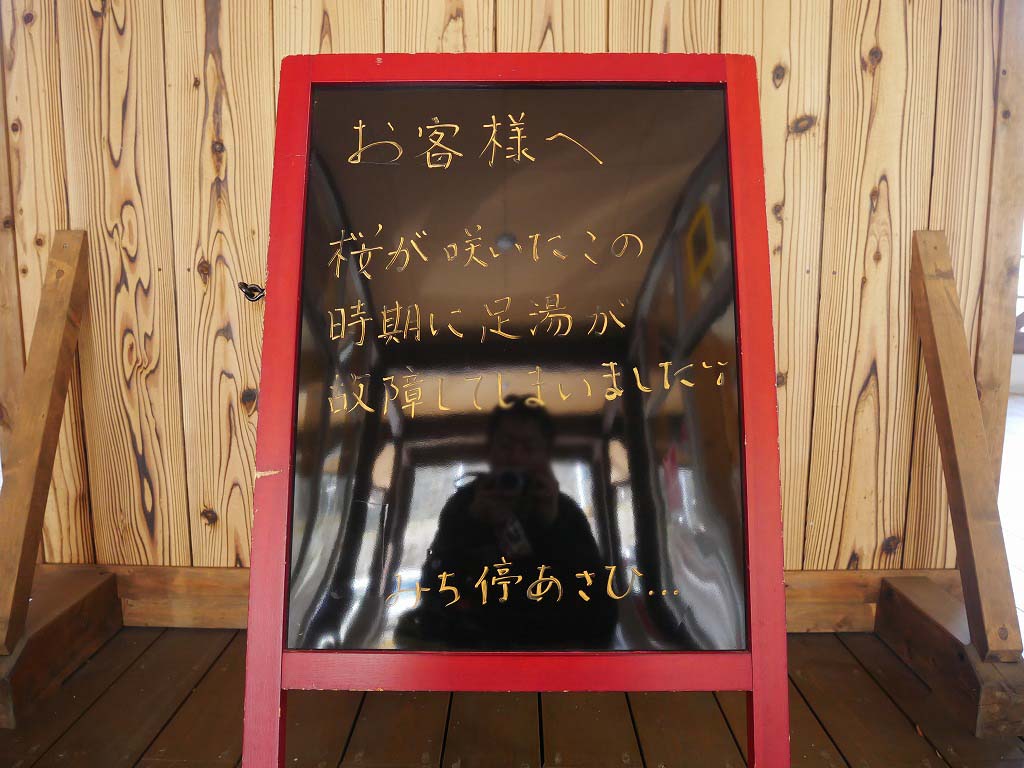 お客様へ
桜が咲いたこの
時期に足湯が
故障してしまいました💧
みち停あさひ...